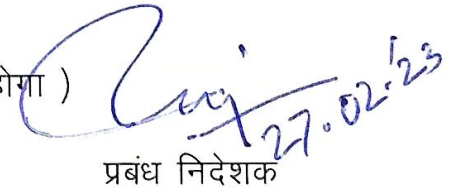 होगा )
27.02.'23
प्रबंध निदेशक